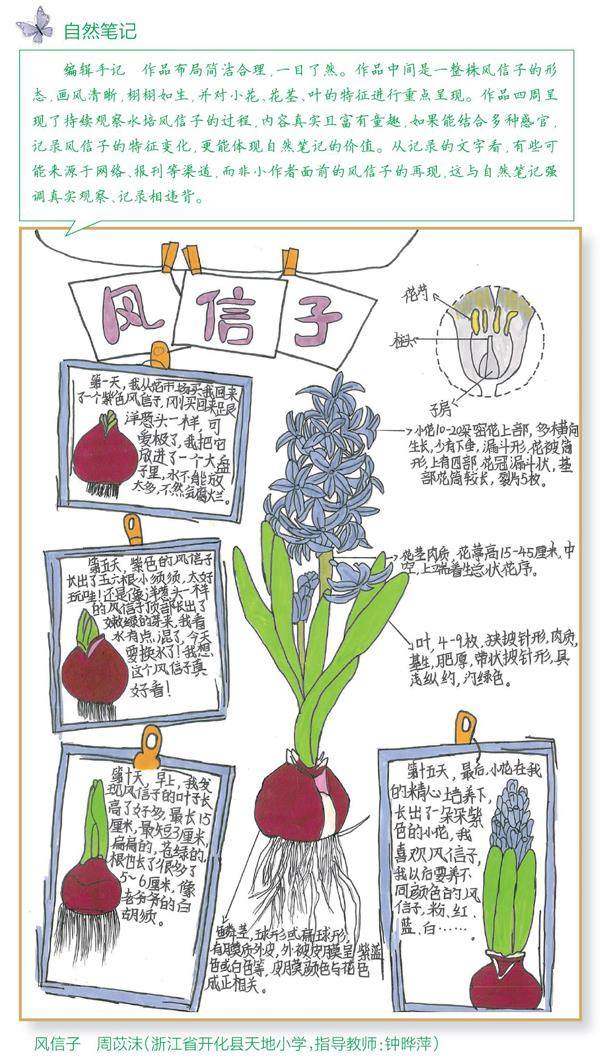 自然笔记
编辑手记　作品布局简洁合理，一目了然。作品中间是一整株风信子的形
态，画风清晰，栩栩如生，并对小花、花茎、叶的特征进行重点呈现。作品四周呈
现了持续观察水培风信子的过程，内容真实且富有童趣，如果能结合多种感官，
记录风信子的特征变化，更能体现自然笔记的价值。从记录的文字看，有些可
能来源于网络、报刊等渠道，而非小作者面前的风信子的再现，这与自然笔记强
调真实观察、记录相违背。
风信子
花药
柱头
子房
第一天，我从花市场买我回来
了一个紫色风信子，刚买回来足足
洋葱头一样，可
爱极了，我把它
放进了一个大盆
子里，水不能放
太多，不然会腐烂。
小花10-20朵密花上部，多横向
生长，少有下垂，漏斗形，花被筒
形，上有四部，花冠漏斗状，基
部花筒较长，裂片5枚。
花茎肉质，花葶高15-45厘米，中
空，上端着生总状花序。
叶，4-9枚，狭披针形，肉质，
基生，肥厚，带状披针形，具
浅纵约，沟绿色。
第五天，紫色的风信子
长出了五六根小须须，太好
玩哇！还是像洋葱头一样
的风信子顶部长出了
嫩绿的芽来，我看
水有点混了，今天
要换水了！我想，
这个风信子真
好看！
第十天，早上，我发
现风信子的叶子长
高了好多，最长15
厘米，最短3厘米，
扁扁的，苍绿的，
根也长了很多了
5~6厘米，像
老爷爷的白
胡须。
鳞茎，球形或扁球形，
有膜质外皮，外被皮膜呈紫蓝
色或白色等，皮膜颜色与花色
成正相关。
第十五天，最后，小花在我
的精心培养下，
长出了一朵朵紫
色的小花，我
喜欢风信子，
我以后要养不
同颜色的风
信子，粉、红、
蓝、白……。
风信子　周苡沫（浙江省开化县天地小学，指导教师：钟晔萍）